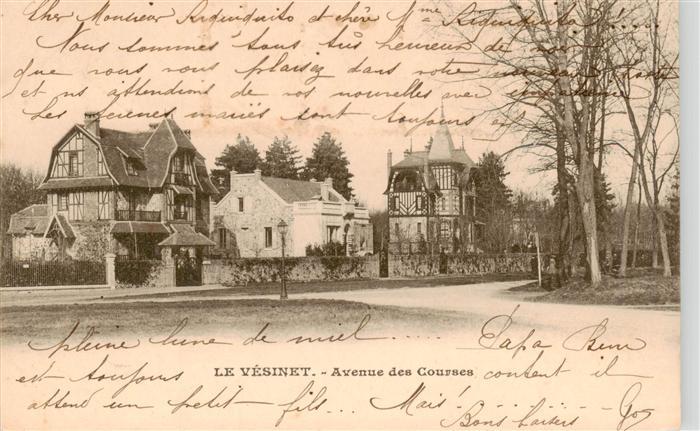 Cher Monsieur Arquiduito et chère Mme Arquiduito!....
Nous sommes tous très heureux de voir
que vous vous plaisez dans votre nouveau
et ns attendions de vos nouvelles avec impatience
Les jeunes mariés sont toujours en
pleine lune de miel.....
LE VÉSINET. - Avenue des Courses
Papa Bim
est toujours content il
attend un petit fils... Mais!
Bons baisers